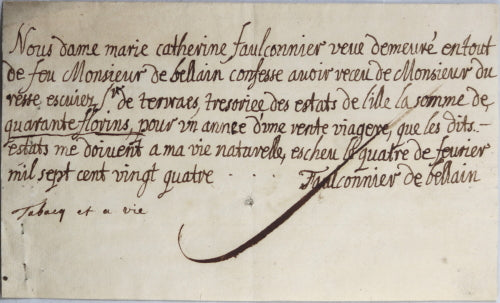 Nous dame marie catherine faulconnier veue demeuré en tout
de feu Monsieur de bellain confesse auoir receu de Monsieur du
resse, escuier, Sr. de terwaes, tresorier des estats de lille la somme de,
quarante florins, pour vn annee d'vne rente viagere, que les dits.-
estats me doiuent a ma vie naturelle, escheu le quatre de feurier
mil sept cent vingt quatre - . . . faulconnier de bellain
Tabacq et a vie